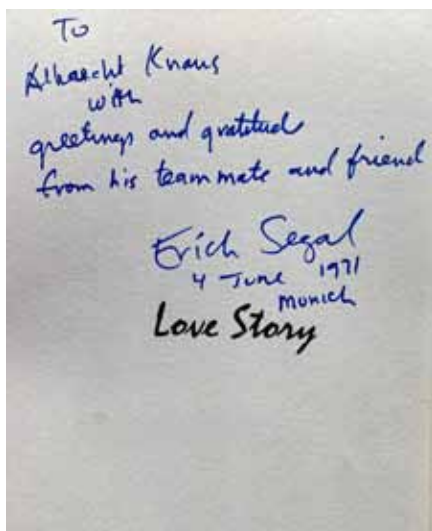 To
Albrecht Knaus
with
greetings and gratitude
from his teammate and friend
Erich Segal
4 June 1971
Munich
Love Story